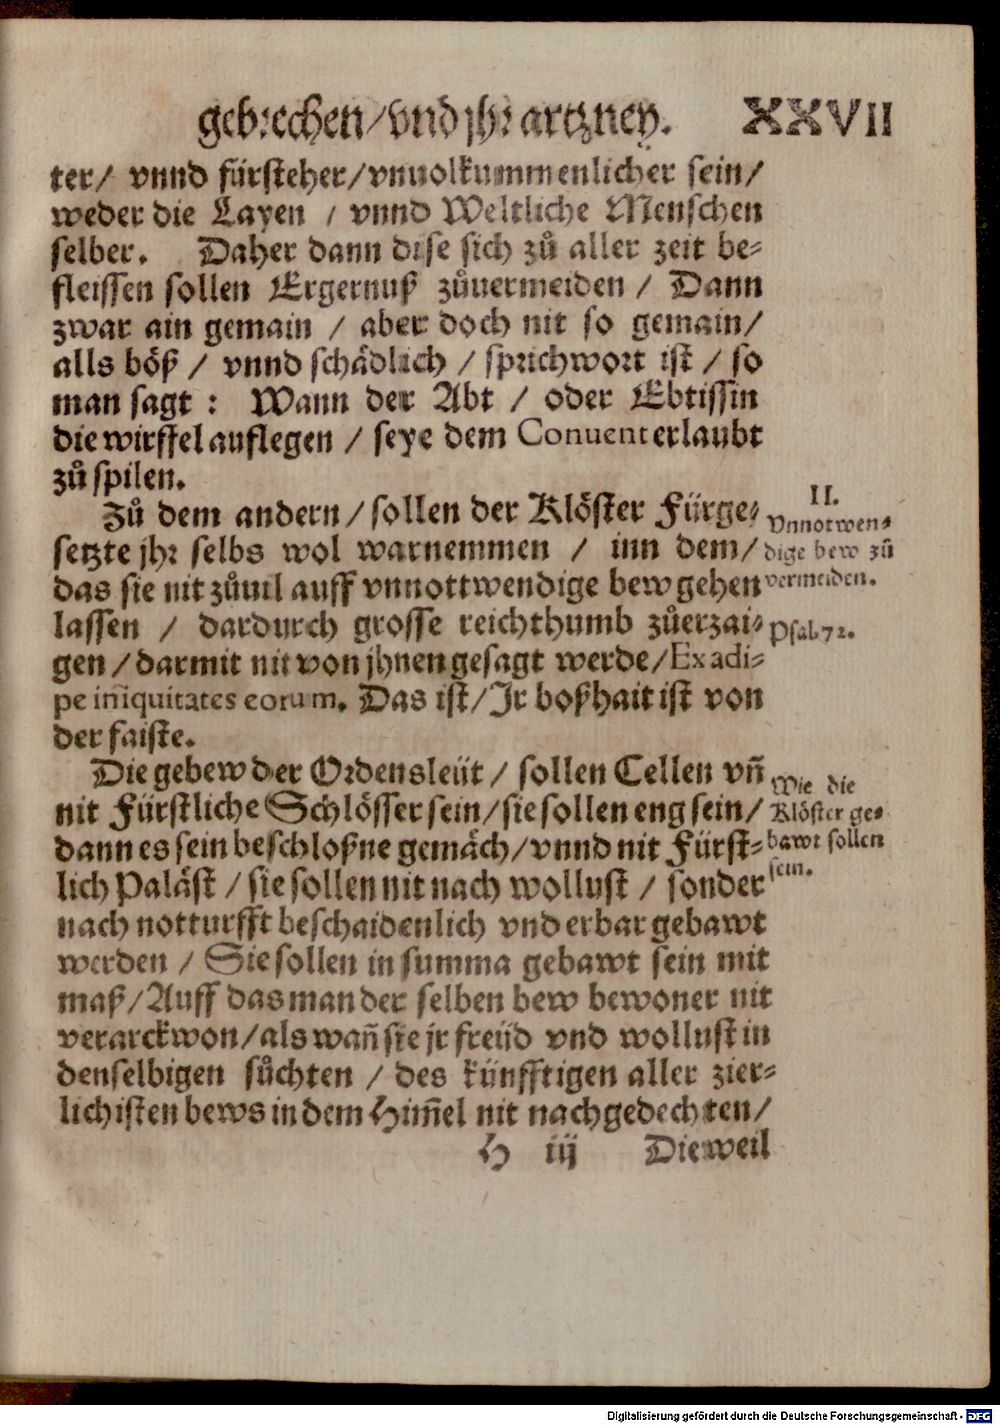 gebrechen/vnd jhr artzney. XXVII
ter/ vnnd fürsteher/vnuolkummenlicher sein/
weder die Layen / vnnd Weltliche Menschen
selber. Daher dann dise sich zů aller zeit be-
fleissen sollen Ergernuß zůuermeiden / Dann
zwar ain gemain / aber doch nit so gemain/
alls böß / vnnd schädlich / sprichwort ist / so
man sagt : Wann der Abt / oder Ebtissin
die wirffel auflegen / seye dem Conuent erlaubt
zů spilen.
Zů dem andern/sollen der Klöster Fürge-
setzte jhr selbs wol warnemmen / inn dem/
das sie nit zůuil auff vnnottwendige bew gehen
lassen / dardurch grosse reichthumb zůerzai-
gen/darmit nit von jhnen gesagt werde/Ex adi-
pe iniquitates eorum. Das ist/Jr boßhait ist von
der faiste.
II.
Vnnotwen-
dige bew zů
vermeiden.
Psal.72.
Die gebew der Ordensleüt / sollen Cellen vñ
nit Fürstliche Schlösser sein/sie sollen eng sein/
dann es sein beschloßne gemäch/vnnd nit Fürst-
lich Paläst / sie sollen nit nach wollust / sonder
nach notturfft beschaidenlich vnd erbar gebawt
werden / Sie sollen in summa gebawt sein mit
maß/Auff das man der selben bew bewoner nit
verarckwon/als wañ sie jr freüd vnd wollust in
denselbigen sůchten / des künfftigen aller zier-
lichisten bews in dem Him̃el nit nachgedechten/
Wie die
Klöster ge-
bawt sollen
sein.
H iij Dieweil
Digitalisierung gefördert durch die Deutsche Forschungsgemeinschaft - DFG